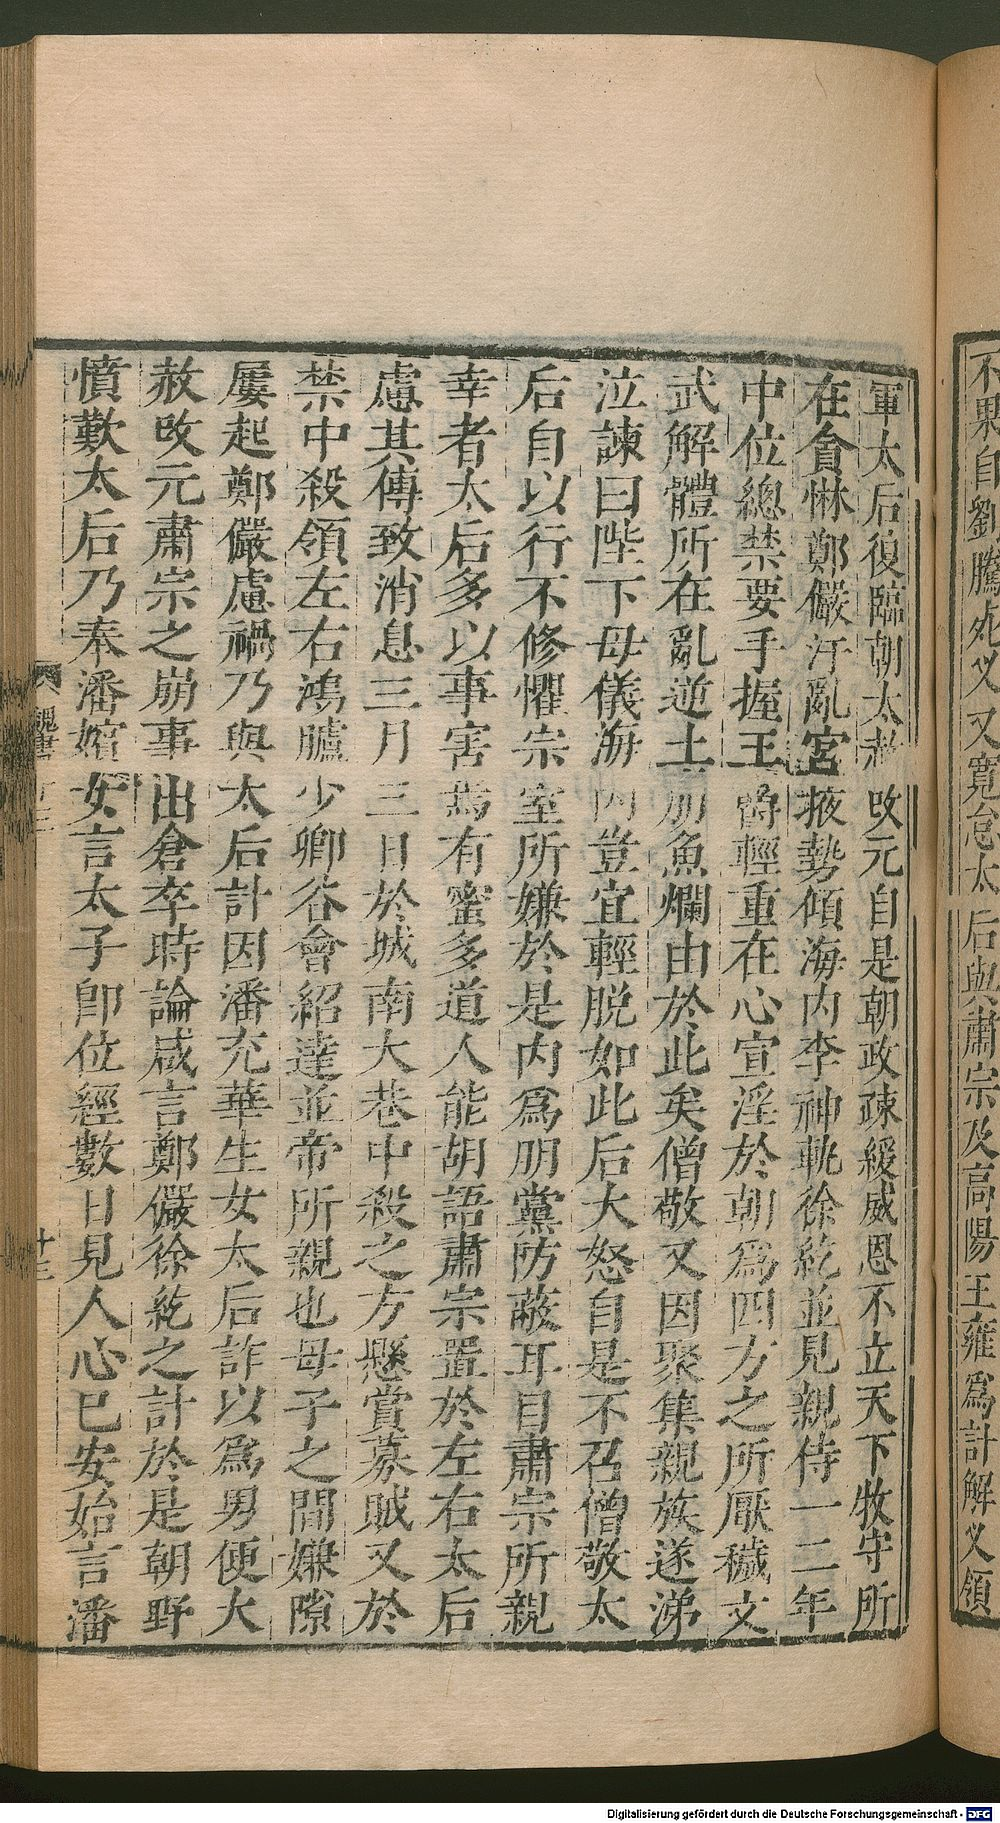 不果自劉騰死乂又寬怠太后與肅宗及高陽王雍爲計解乂領
軍太后復臨朝大赦改元自是朝政疎緩威恩不立天下牧守所
在貪惏鄭儼汙亂宮掖勢傾海内李神軌徐紇並見親侍一二年
中位總禁要手握王爵輕重在心宣淫於朝爲四方之所厭穢文
武解體所在亂逆土崩魚爛由於此矣僧敬又因聚集親族遂涕
泣諫曰陛下母儀海内豈宜輕脫如此后大怒自是不召僧敬太
后自以行不修懼宗室所嫌於是内爲朋黨防蔽耳目肅宗所親
幸者太后多以事害焉有蜜多道人能胡語肅宗置於左右太后
慮其傳致消息三月三日於城南大巷中殺之方懸賞募賊又於
禁中殺領左右鴻臚少卿谷會紹達並帝所親也母子之間嫌隙
屢起鄭儼慮禍乃與太后計因潘充華生女太后詐以爲男便大
赦改元肅宗之崩事出倉卒時論咸言鄭儼徐紇之計於是朝野
憤歎太后乃奉潘嬪女言太子卽位經數日見人心已安始言潘
魏書
十三
Digitalisierung gefördert durch die Deutsche Forschungsgemeinschaft - DFG